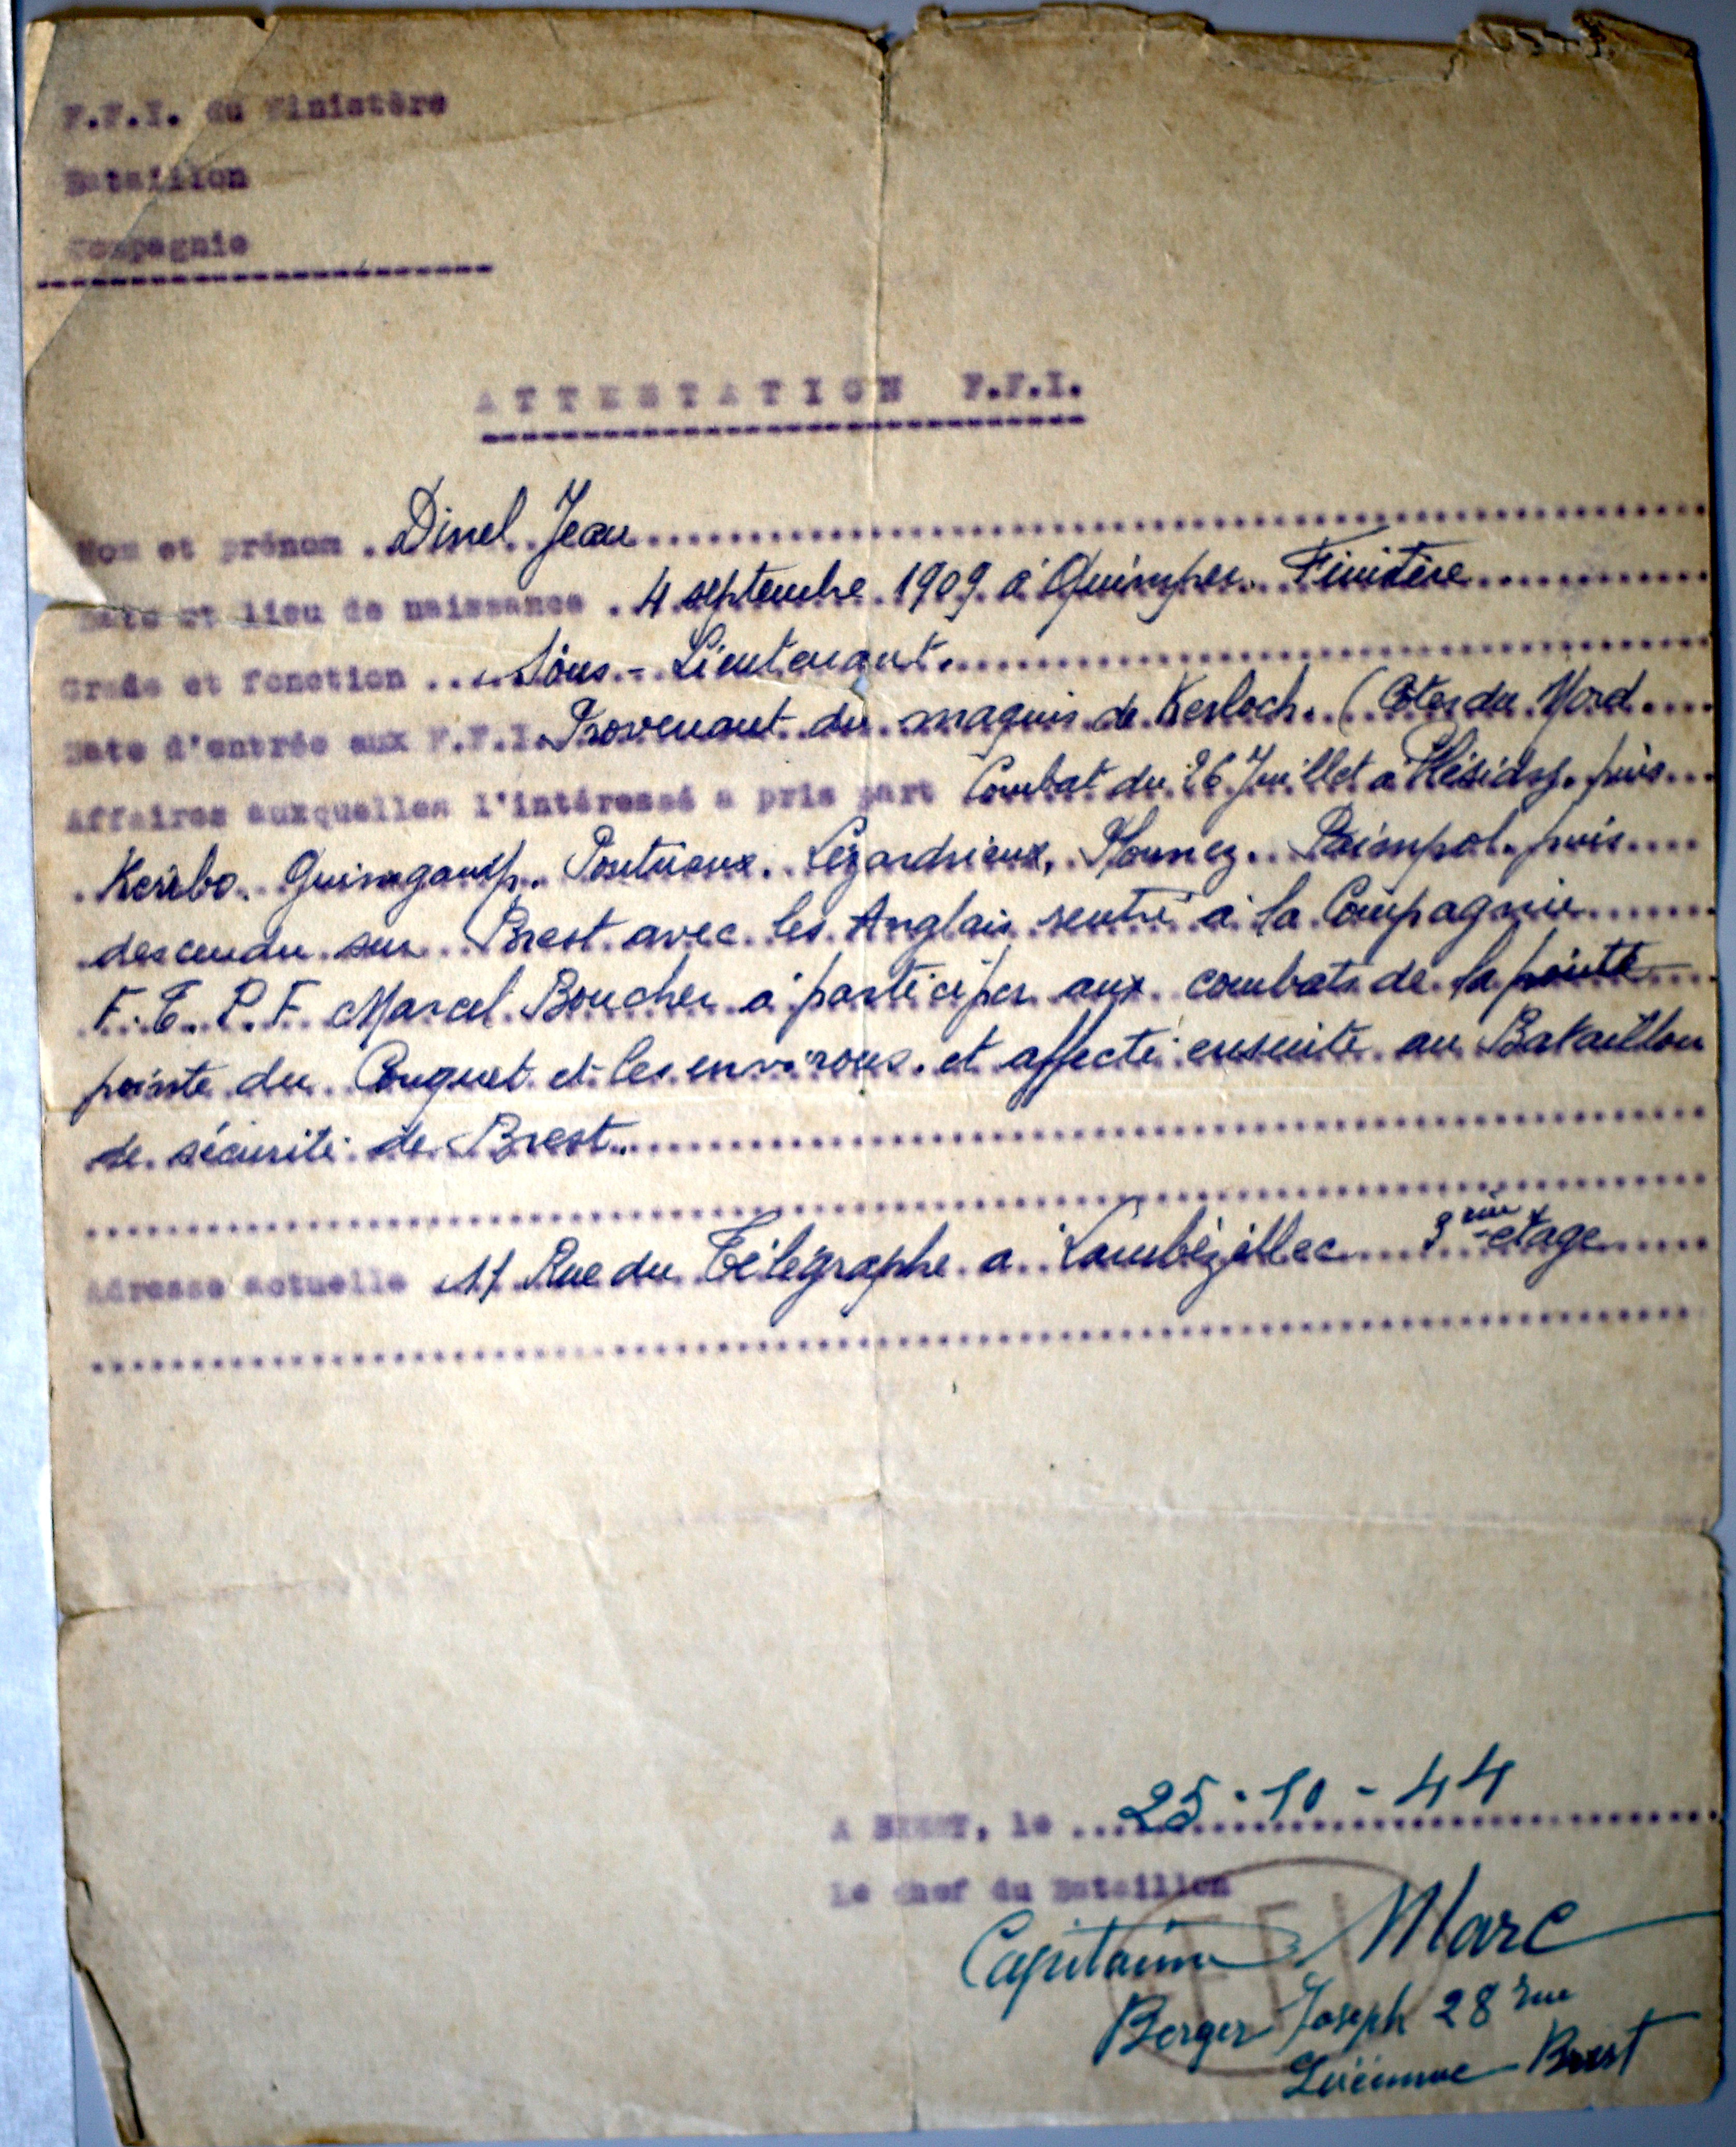 F.F.I. du Finistère
Bataillon
Compagnie
ATTESTATION F.F.I.
Nom et prénom . Dinel Jean
Date et lieu de naissance . 4 septembre 1909 à Quimper. Finistère
Grade et fonction .... Sous-Lieutenant.
Date d'entrée aux F.F.I. Provenant du maquis de Kerloch. (Côtes du Nord
Affaires auxquelles l'intéressé a pris part Combat du 26 Juillet a Plésidy. puis
Keribo. Guingamp. Pontrieux. Lézardrieux, Plounez. Paimpol. puis
descendu sur Brest avec les Anglais rentré à la Compagnie
F.T.P.F Marcel Boucher a participer aux combats de la pointe
pointe du Conquet et les environs. et affecté ensuite au Bataillon
de sécurité de Brest.
Adresse actuelle 11 Rue du Télégraphe a Lambézellec 3 ème étage
A BREST, le 25-10-44
Le Chef du Bataillon
Capitaine Marc
FFI
Berger Joseph 28 rue
Brest